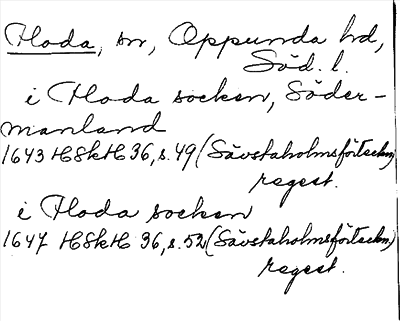 Floda, sn, Oppunda hd,
Söd. l.
i Floda socken, Söder-
manland
1643 HSkH 36, s. 49 (Sävstaholmsförteckn)
regest.
i Floda socken
1647 HSkH 36, s. 52 (Sävstaholmsförteckn)
regest.